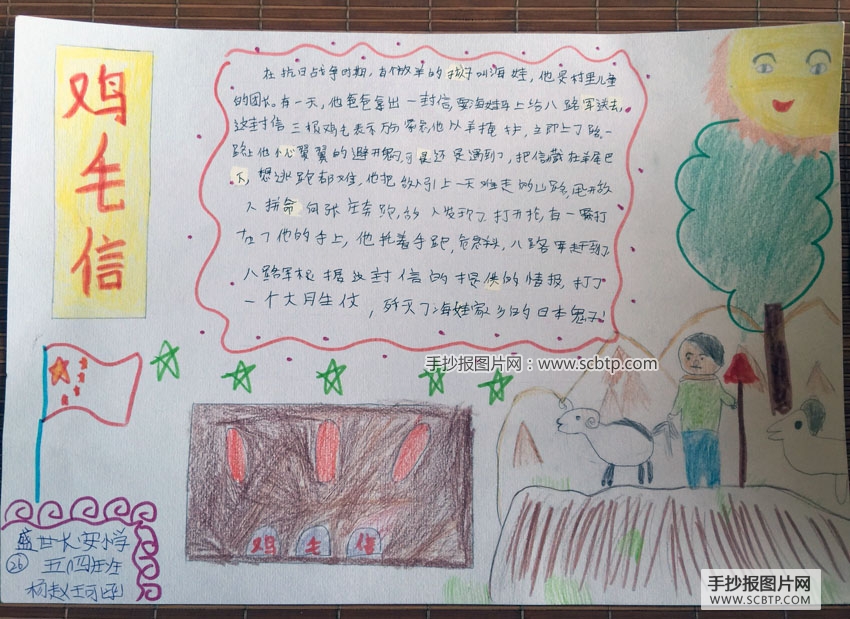 鸡毛信
在抗日战争时期,有个放羊的孩子叫海娃,他是村里儿童
的团长。有一天,他爸爸拿出一封信,要海娃马上给八路军送去,
这封信三根鸡毛表示万分紧急,他以羊掩护,立即上了路,一
路上他小心翼翼的避开鬼子,可是还是遇到了,把信藏在羊尾巴
下,想逃跑都难,他把敌人引上一天难走的山路,甩开敌
人拼命向张庄奔跑,敌人发现了打开抢,有一颗打
在了他的手上,他托着手跑,危急关头,八路军赶到了
八路军根据这封信的提供的情报,打了
一个大胜仗,歼灭了海娃家乡的日本鬼子!
手抄报图片网:www.scbtp.com
鸡 毛 信
盛世长安小学
26 五(四)班
手抄报图片网
WWW.SCBTP.COM